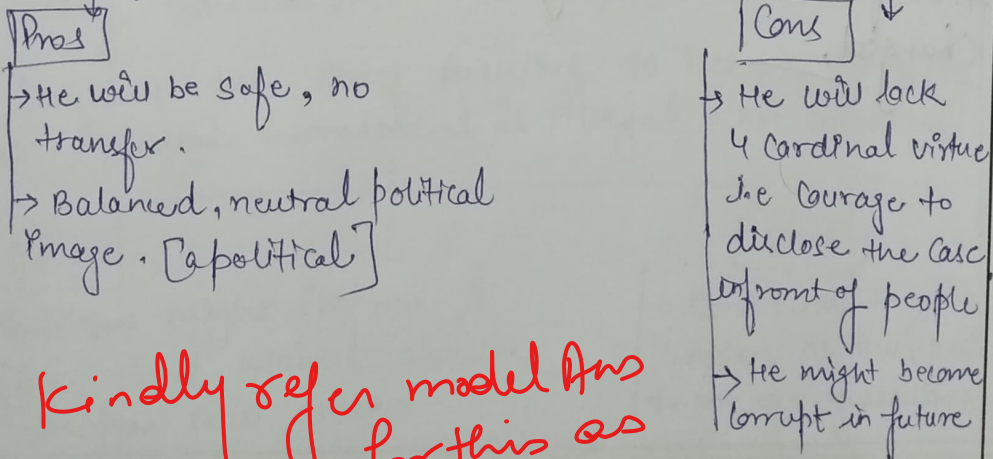 Pros
→ He will be safe, no
transfer.
→ Balanced, neutral political
image. [apolitical]
Cons
→ He will lack
4 Cardinal virtue
i.e Courage to
disclose the case
infront of people
→ He might become
Corrupt in future
Kindly refer model Ans
for this as